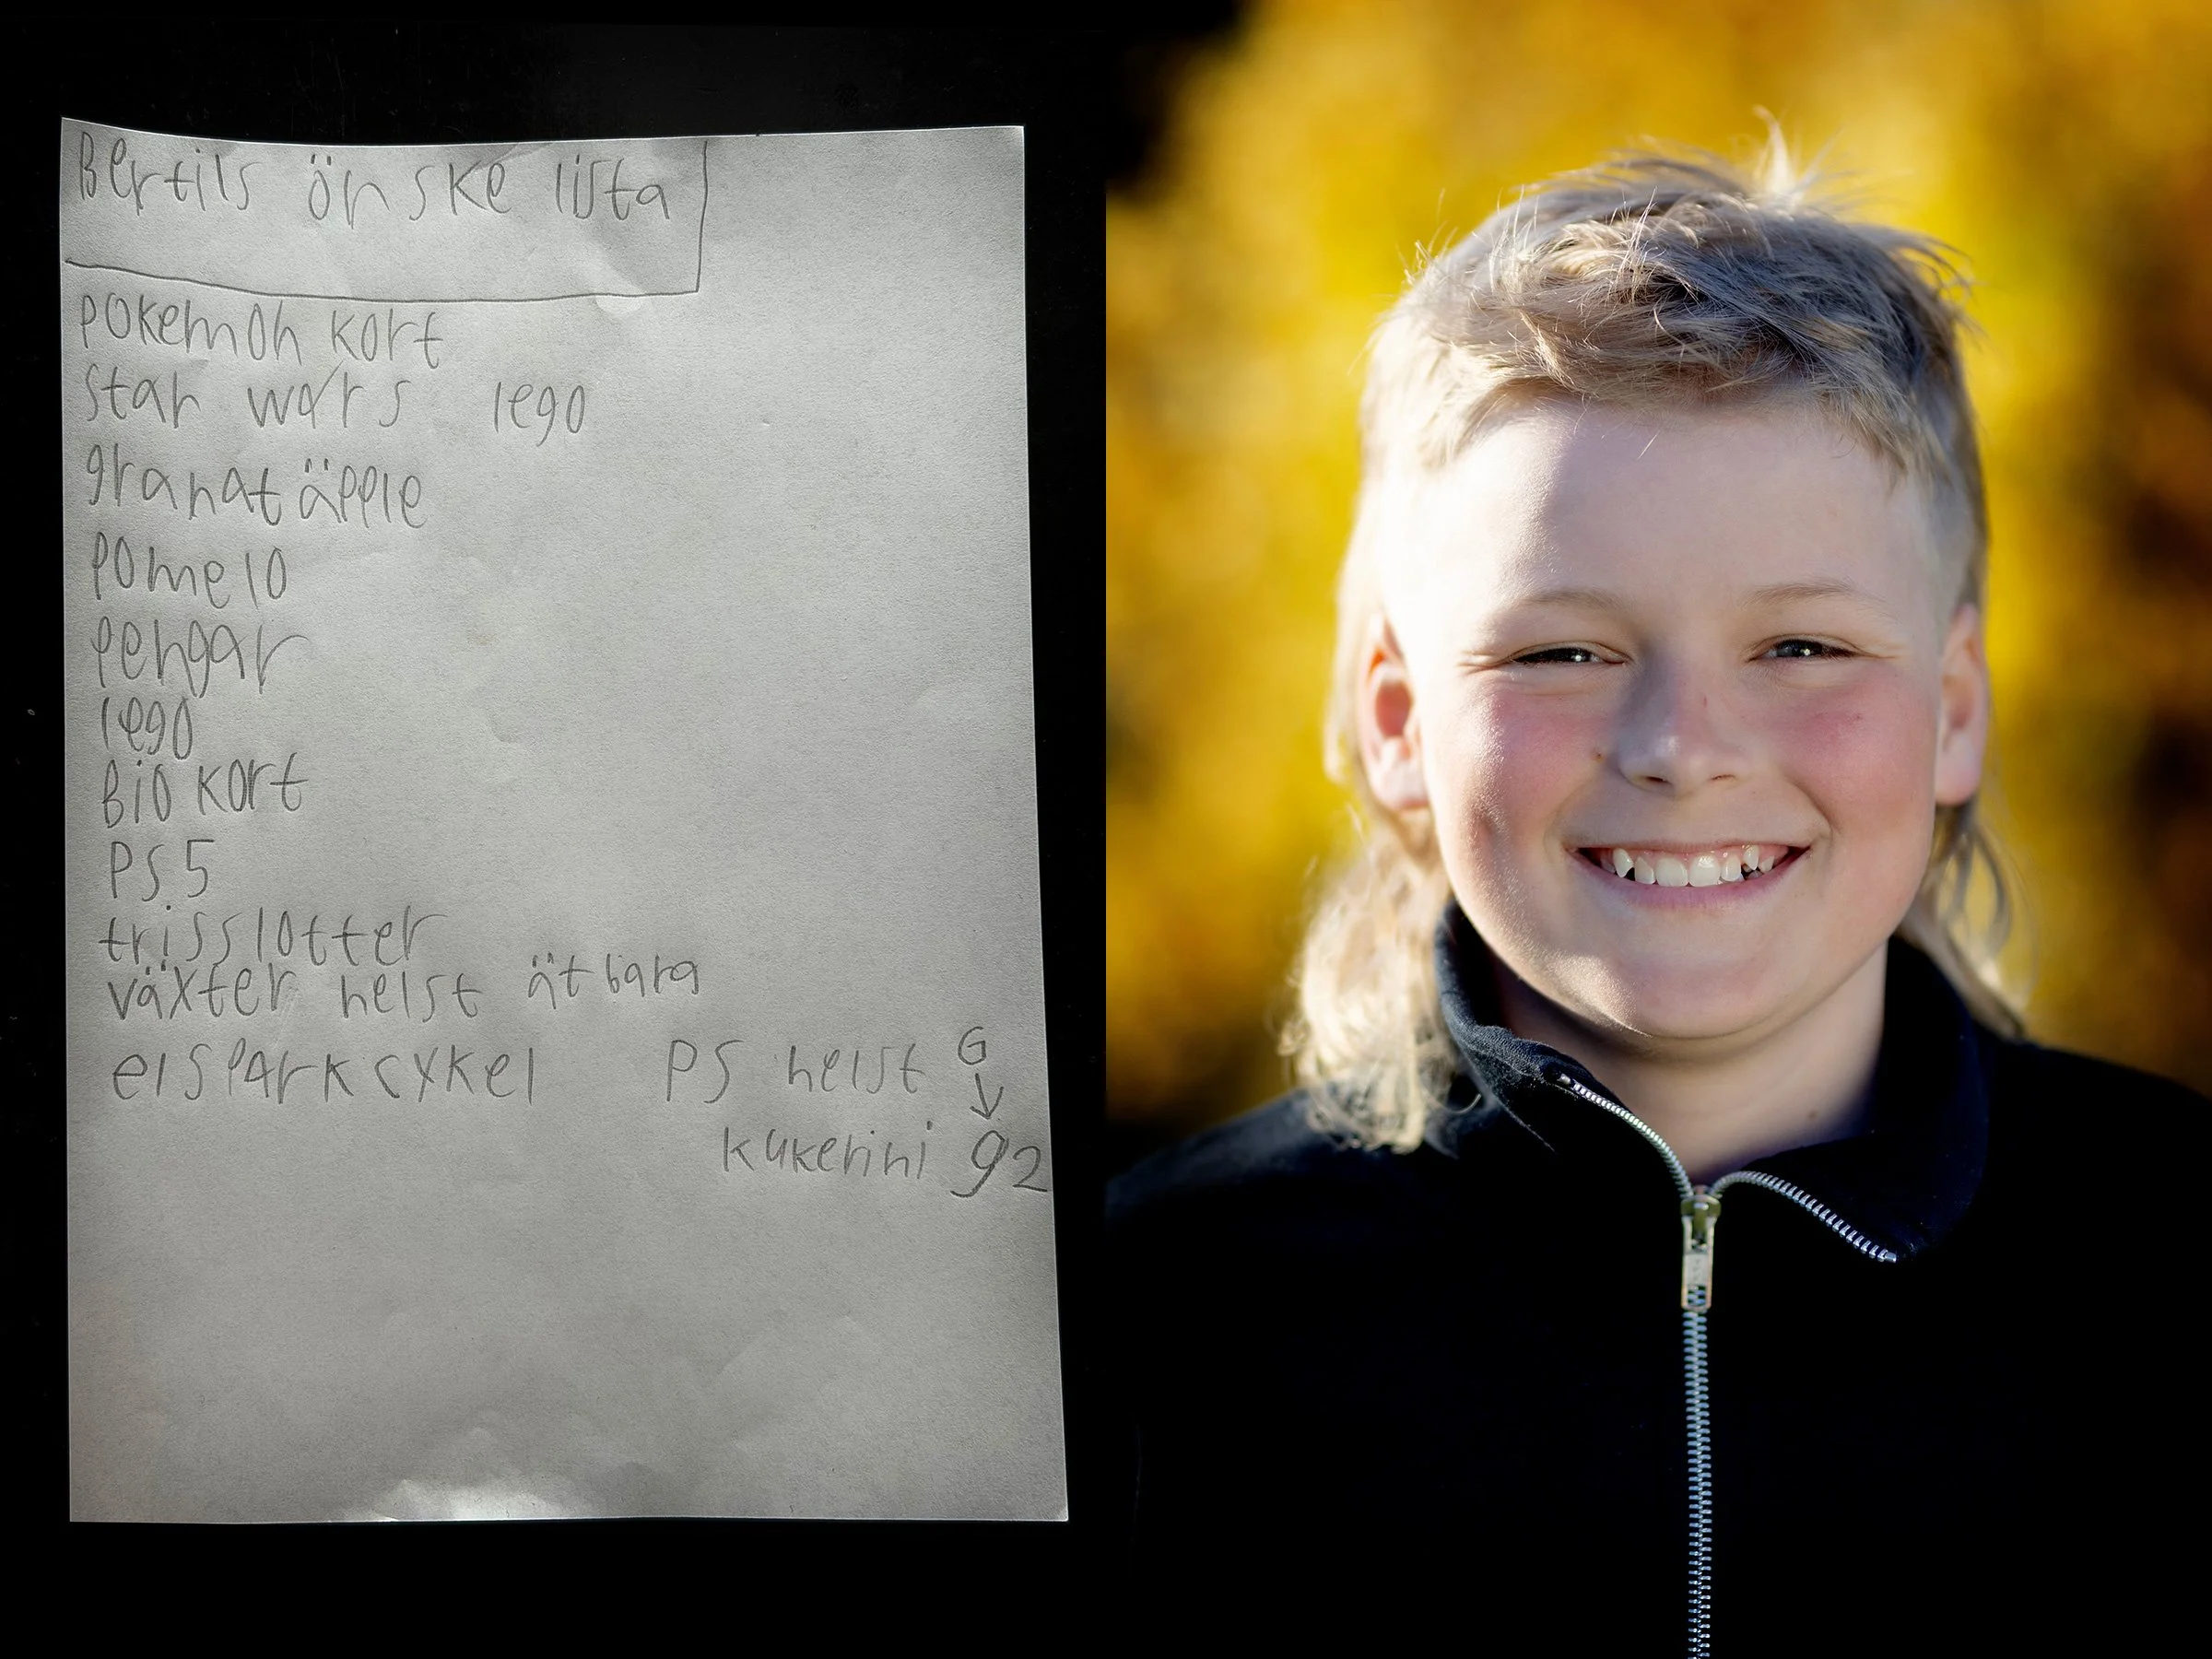 Bertils önske lista
pokemon kort
star wars lego
granatäpple
pomelo
pengar
lego
Bio kort
PS5
trisslotter
växter helst ätbara
elsparkcykel PS helst G
↓
kukerini g2